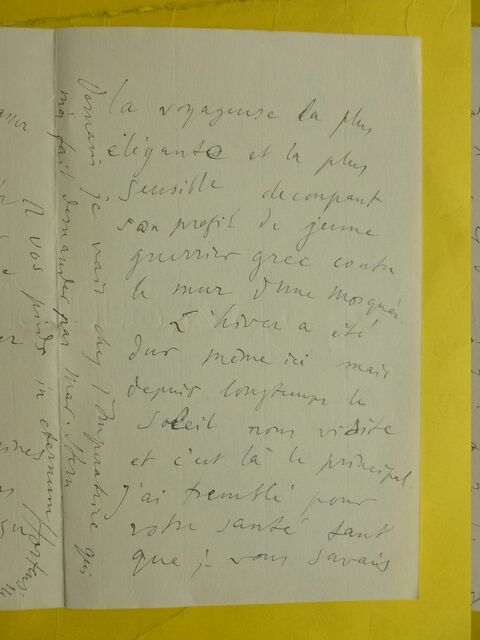 la voyageuse la plus
élégante et la plus
sensible decoupant
son profil de jeune
guerrier grec contre
le mur d'une mosquée.
L'hiver a été
dur même ici mais
depuis longtemps le
soleil nous visite
et c'est là le principal.
J'ai tremblé pour
votre santé tant
que je vous savais
Demain je vais chez l'Impératrice qui
m'a fait demander par Mar. Stern
A vos pieds in eternum